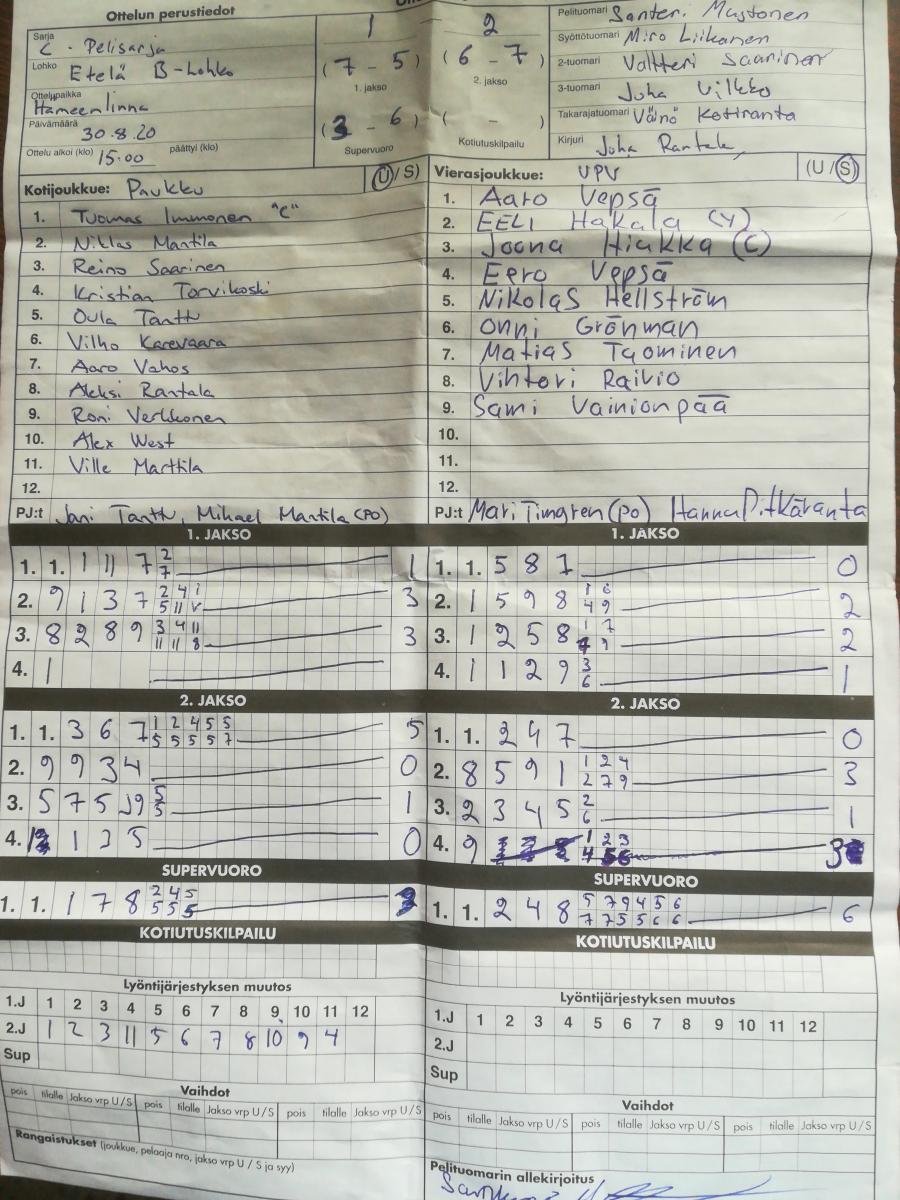 Ottelun perustiedot
Sarja
C - Pelisarja
Lohko
Etelä B-Lohko
Ottelupaikka
Hämeenlinna
Päivämäärä
30.8.20
Ottelu alkoi (klo) 15.00 päättyi (klo)
1 2
(7 - 5) (6 - 7)
1. jakso 2. jakso
(3 - 6) ( - )
Supervuoro Kotiutuskilpailu
Pelituomari Santeri Mustonen
Syöttötuomari Miro Liikanen
2-tuomari Valtteri Saarinen
3-tuomari Juha Vilkko
Takarajatuomari Väinö Kotiranta
Kirjuri Juha Rantala
Kotijoukkue: Paukku (U/S)
1. Tuomas Immonen "C"
2. Niklas Mantila
3. Reino Saarinen
4. Kristian Torvikoski
5. Oula Tanttu
6. Vilho Karevaara
7. Aaro Vahos
8. Aleksi Rantala
9. Roni Verkkonen
10. Alex West
11. Ville Marttila
12.
PJ:t Jani Tanttu, Mikael Mantila (PO)
Vierasjoukkue: UPV (U/S)
1. Aaro Vepsä
2. EELI Hakala (Y)
3. Joona Hiukka (C)
4. Eero Vepsä
5. Nikolas Hellström
6. Onni Grönman
7. Matias Tuominen
8. Vihtori Raivio
9. Sami Vainionpää
10.
11.
12.
PJ:t Mari Timgren (po) Hanna Pitkäranta
1. JAKSO
1. 1. 1 11 7 2 7 1
2. 9 1 3 7 2 4 1 5 11 V 3
3. 8 2 8 9 3 4 11 11 11 8 3
4. 1
2. JAKSO
1. 1. 3 6 7 1 2 4 5 5 5 5 5 5 7 5
2. 9 9 3 4 0
3. 5 7 5 9 5 5 1
4. 1 3 5 0
SUPERVUORO
1. 1. 1 7 8 2 4 5 5 5 5 3
KOTIUTUSKILPAILU
Lyöntijärjestyksen muutos
1.J 1 2 3 4 5 6 7 8 9 10 11 12
2.J 1 2 3 11 5 6 7 8 10 9 4
Sup
Vaihdot
pois tilalle Jakso vrp U/S pois tilalle Jakso vrp U/S pois tilalle Jakso vrp U/S
Rangaistukset (joukkue, pelaaja nro, jakso vrp U / S ja syy)
1. JAKSO
1. 1. 5 8 7 0
2. 1 5 9 8 1 6 4 9 2
3. 1 2 5 8 1 7 9 2
4. 1 1 2 9 3 6 1
2. JAKSO
1. 1. 2 4 7 0
2. 8 5 9 1 1 2 4 2 7 9 3
3. 2 3 4 5 2 6 1
4. 9 1 2 3 4 5 6 3
SUPERVUORO
1. 1. 2 4 8 5 7 9 4 5 6 7 7 5 5 6 6 6
KOTIUTUSKILPAILU
Lyöntijärjestyksen muutos
1.J 1 2 3 4 5 6 7 8 9 10 11 12
2.J
Sup
Vaihdot
pois tilalle Jakso vrp U/S pois tilalle Jakso vrp U/S pois tilalle Jakso vrp U/S
Pelituomarin allekirjoitus